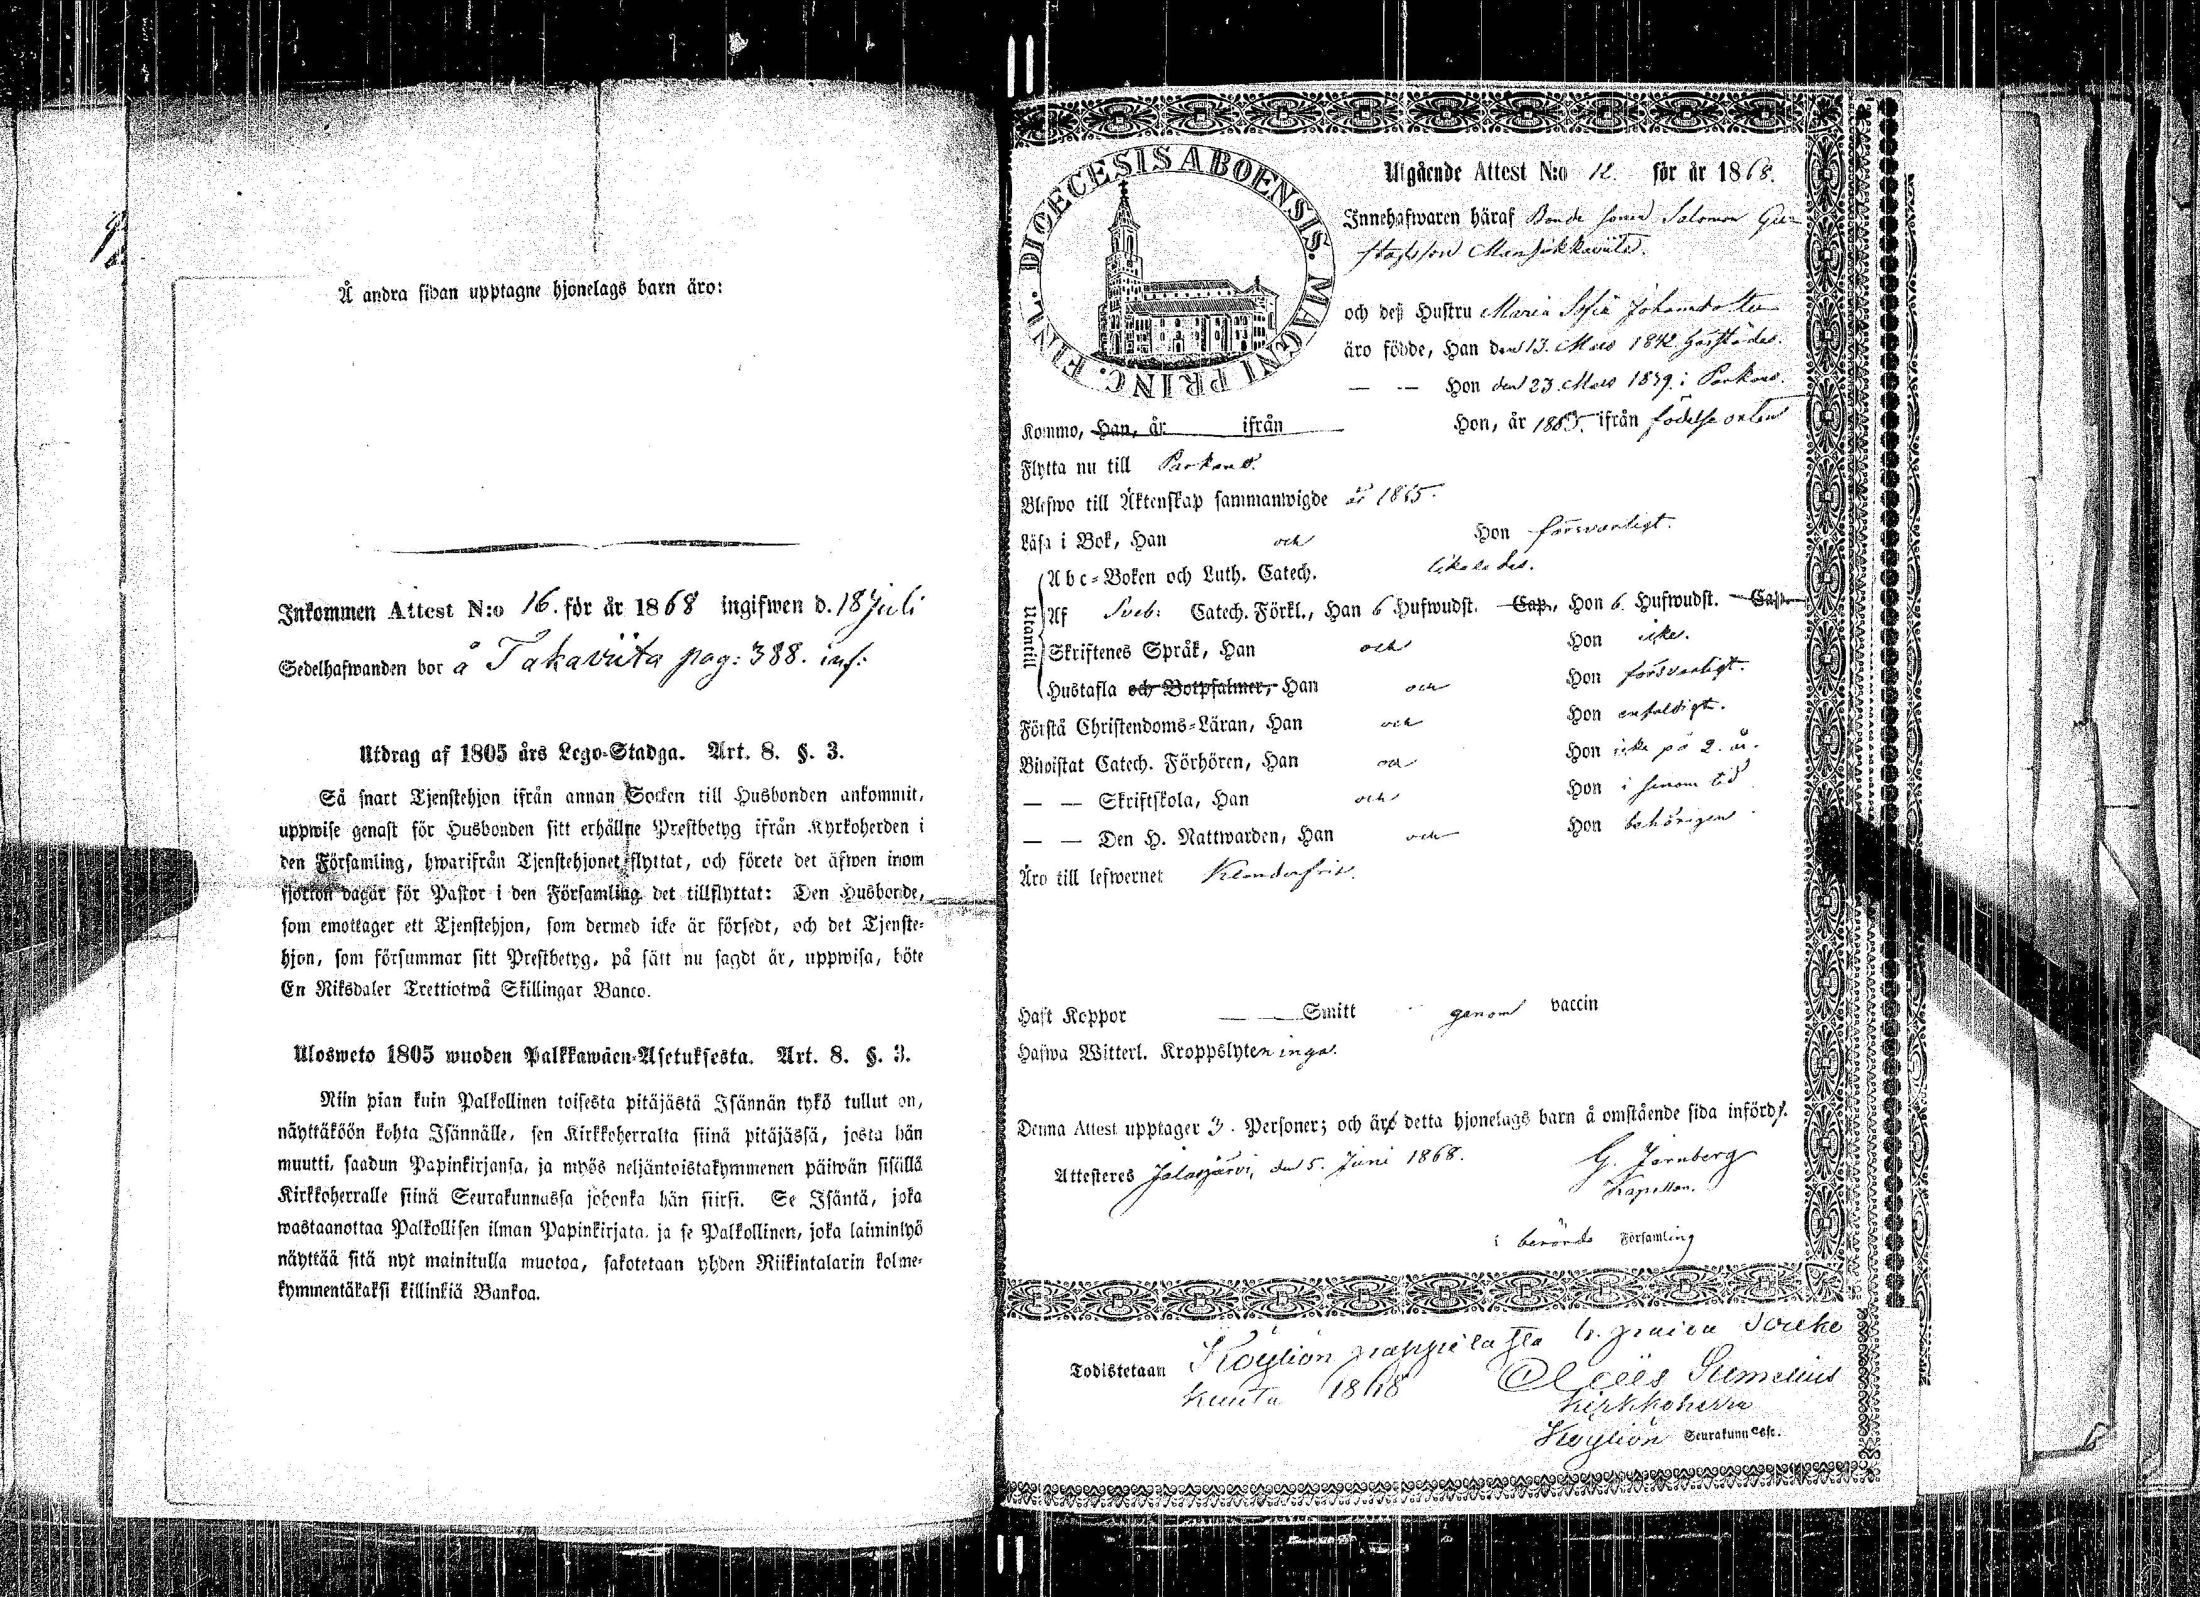 Å andra sidan upptagne hjonelags barn äro:
Inkommen Attest N:o 16. för år 1868 ingifwen d. 18 Juli
Sedelhafwanden bor å Takaviita pag: 388. inf:
Utdrag af 1805 års Lego-Stadga. Art. 8. §. 3.
Så snart Tjenstehjon ifrån annan Socken till Husbonden ankommit,
uppwise genast för Husbonden sitt erhållne Prestbetyg ifrån Kyrkoherden i
den Församling, hwarifrån Tjenstehjonet flyttat, och förete det äfwen inom
fjorton dagar för Pastor i den Församling det tillflyttat: Den Husbonde,
som emottager ett Tjenstehjon, som dermed icke är försedt, och det Tjenste-
hjon, som försummar sitt Prestbetyg, på sätt nu sagdt är, uppwisa, böte
En Riksdaler Trettiotwå Skillingar Banco.
Ulosweto 1805 wuoden Palkkawäen-Asetuksesta. Art. 8. §. 3.
Niin pian kuin Palkollinen toisesta pitäjästä Isännän tykö tullut on,
näyttäköön kohta Isännälle, sen Kirkkoherralta siinä pitäjässä, josta hän
muutti, saadun Papinkirjansa, ja myös neljäntoistakymmenen päiwän sisällä
Kirkkoherralle siinä Seurakunnassa johonka hän siirsi. Se Isäntä, joka
wastaanottaa Palkollisen ilman Papinkirjata, ja se Palkollinen, joka laiminlyö
näyttää sitä nyt mainitulla muotoa, sakotetaan yhden Riikintalarin kolme-
kymmentäkaksi killinkiä Bankoa.
DIOECESIS ABOENSIS. MAGNI PRINC. FINL.
Utgående Attest N:o 12. för år 1868.
Innehafwaren häraf Bonde sonen Salomon Gu-
stafsson
och deß Hustru Maria Sofia Johansdotter
äro födde, Han den 13. Mars 1842 härstädes.
— — Hon den 23. Mars 1839. i Parkano.
Kommo, Han, år ifrån Hon, år 1865. ifrån födelse orten
Flytta nu till Parkano.
Blefwo till Äktenskap sammanwigde år 1865.
Läsa i Bok, Han och Hon försvarligt.
Utantill
Abc-Boken och Luth. Catech. likaledes.
Af Sveb: Catech. Förkl., Han 6 Hufwudst. Cap., Hon 6 Hufwudst. Cap.
Skriftenes Språk, Han och Hon icke.
Hustafla och Botpsalmer, Han och Hon försvarligt.
Förstå Christendoms-Läran, Han och Hon enfaldigt.
Biwistat Catech. Förhören, Han och Hon icke på 2. år.
— — Skriftskola, Han och Hon i sinom tid
— — Den H. Nattwarden, Han och Hon behörigen
Äro till lefwernet Klanderfrie.
Haft Koppor — — Smitt genom vaccin
Hafwa Witterl. Kroppslyten inga.
Denna Attest upptager 3. Personer; och äro detta hjonelags barn å omstående sida införd.
Attesteres Jalasjärvi, den 5. Juni 1868. G. Järnberg
Kapellan.
i berörde Församling
Todistetaan Köyliön pappilassa
kuuta 1868
kirkkoherra
Köyliön Seurakunnasse.